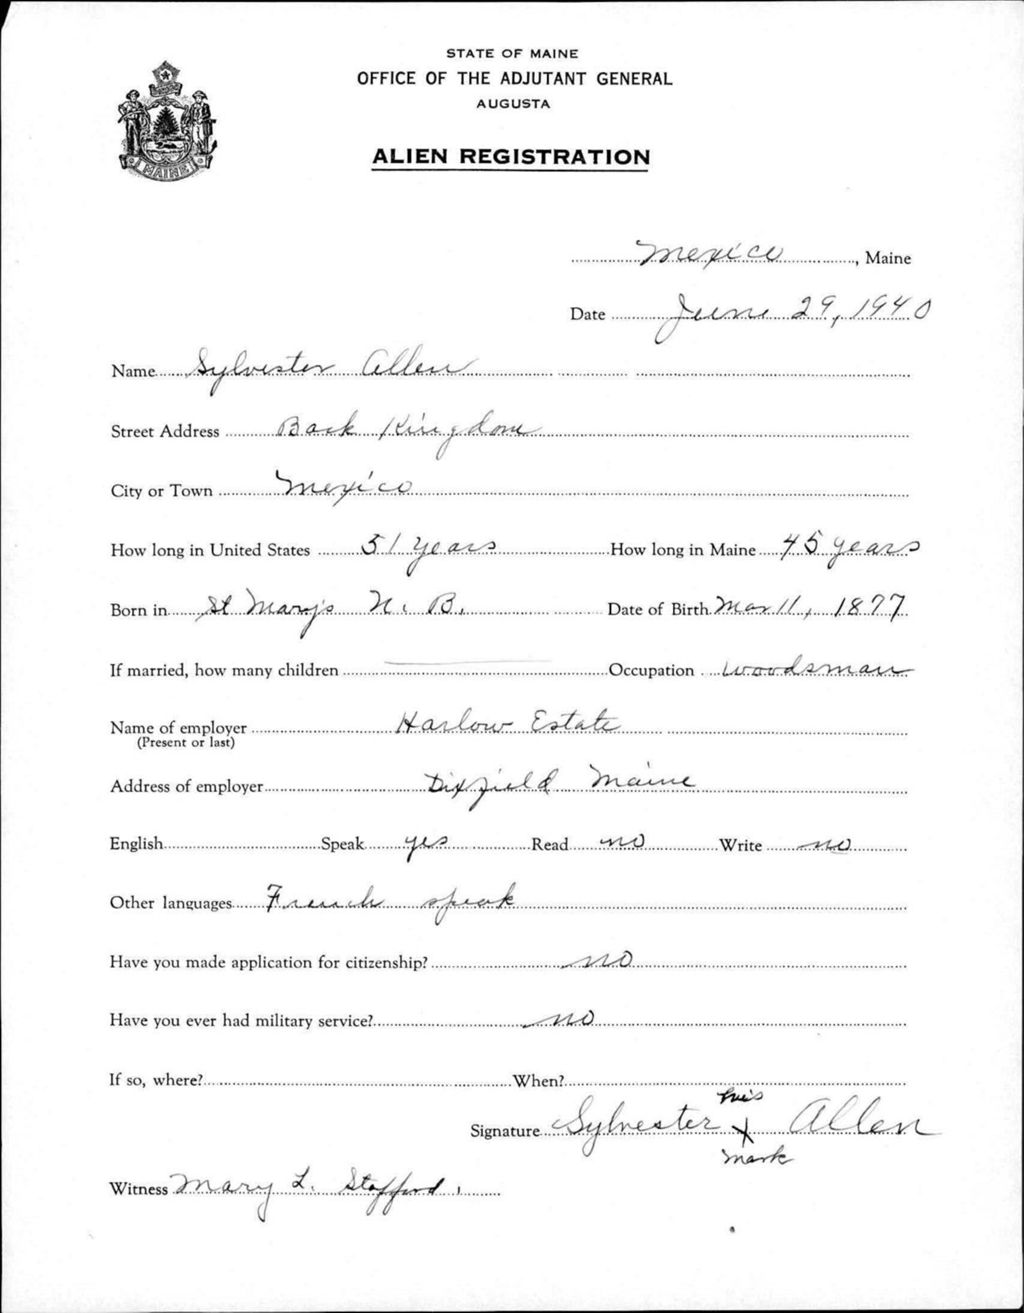 STATE OF MAINE
OFFICE OF THE ADJUTANT GENERAL
AUGUSTA
ALIEN REGISTRATION
MAINE
Mexico, Maine
Date June 29, 1940
Name Sylvester Allen
Street Address Back Kingdom
City or Town Mexico
How long in United States 51 years How long in Maine 45 years
Born in St Mary's N. B. Date of Birth Mar 11, 1877
If married, how many children Occupation Woodsman
Name of employer Harlow Estate
(Present or last)
Address of employer Dixfield Maine
English Speak yes Read no Write no
Other languages French speak
Have you made application for citizenship? no
Have you ever had military service? no
If so, where? When?
his
Signature Sylvester X Allen
mark
Witness Mary L. Stafford.